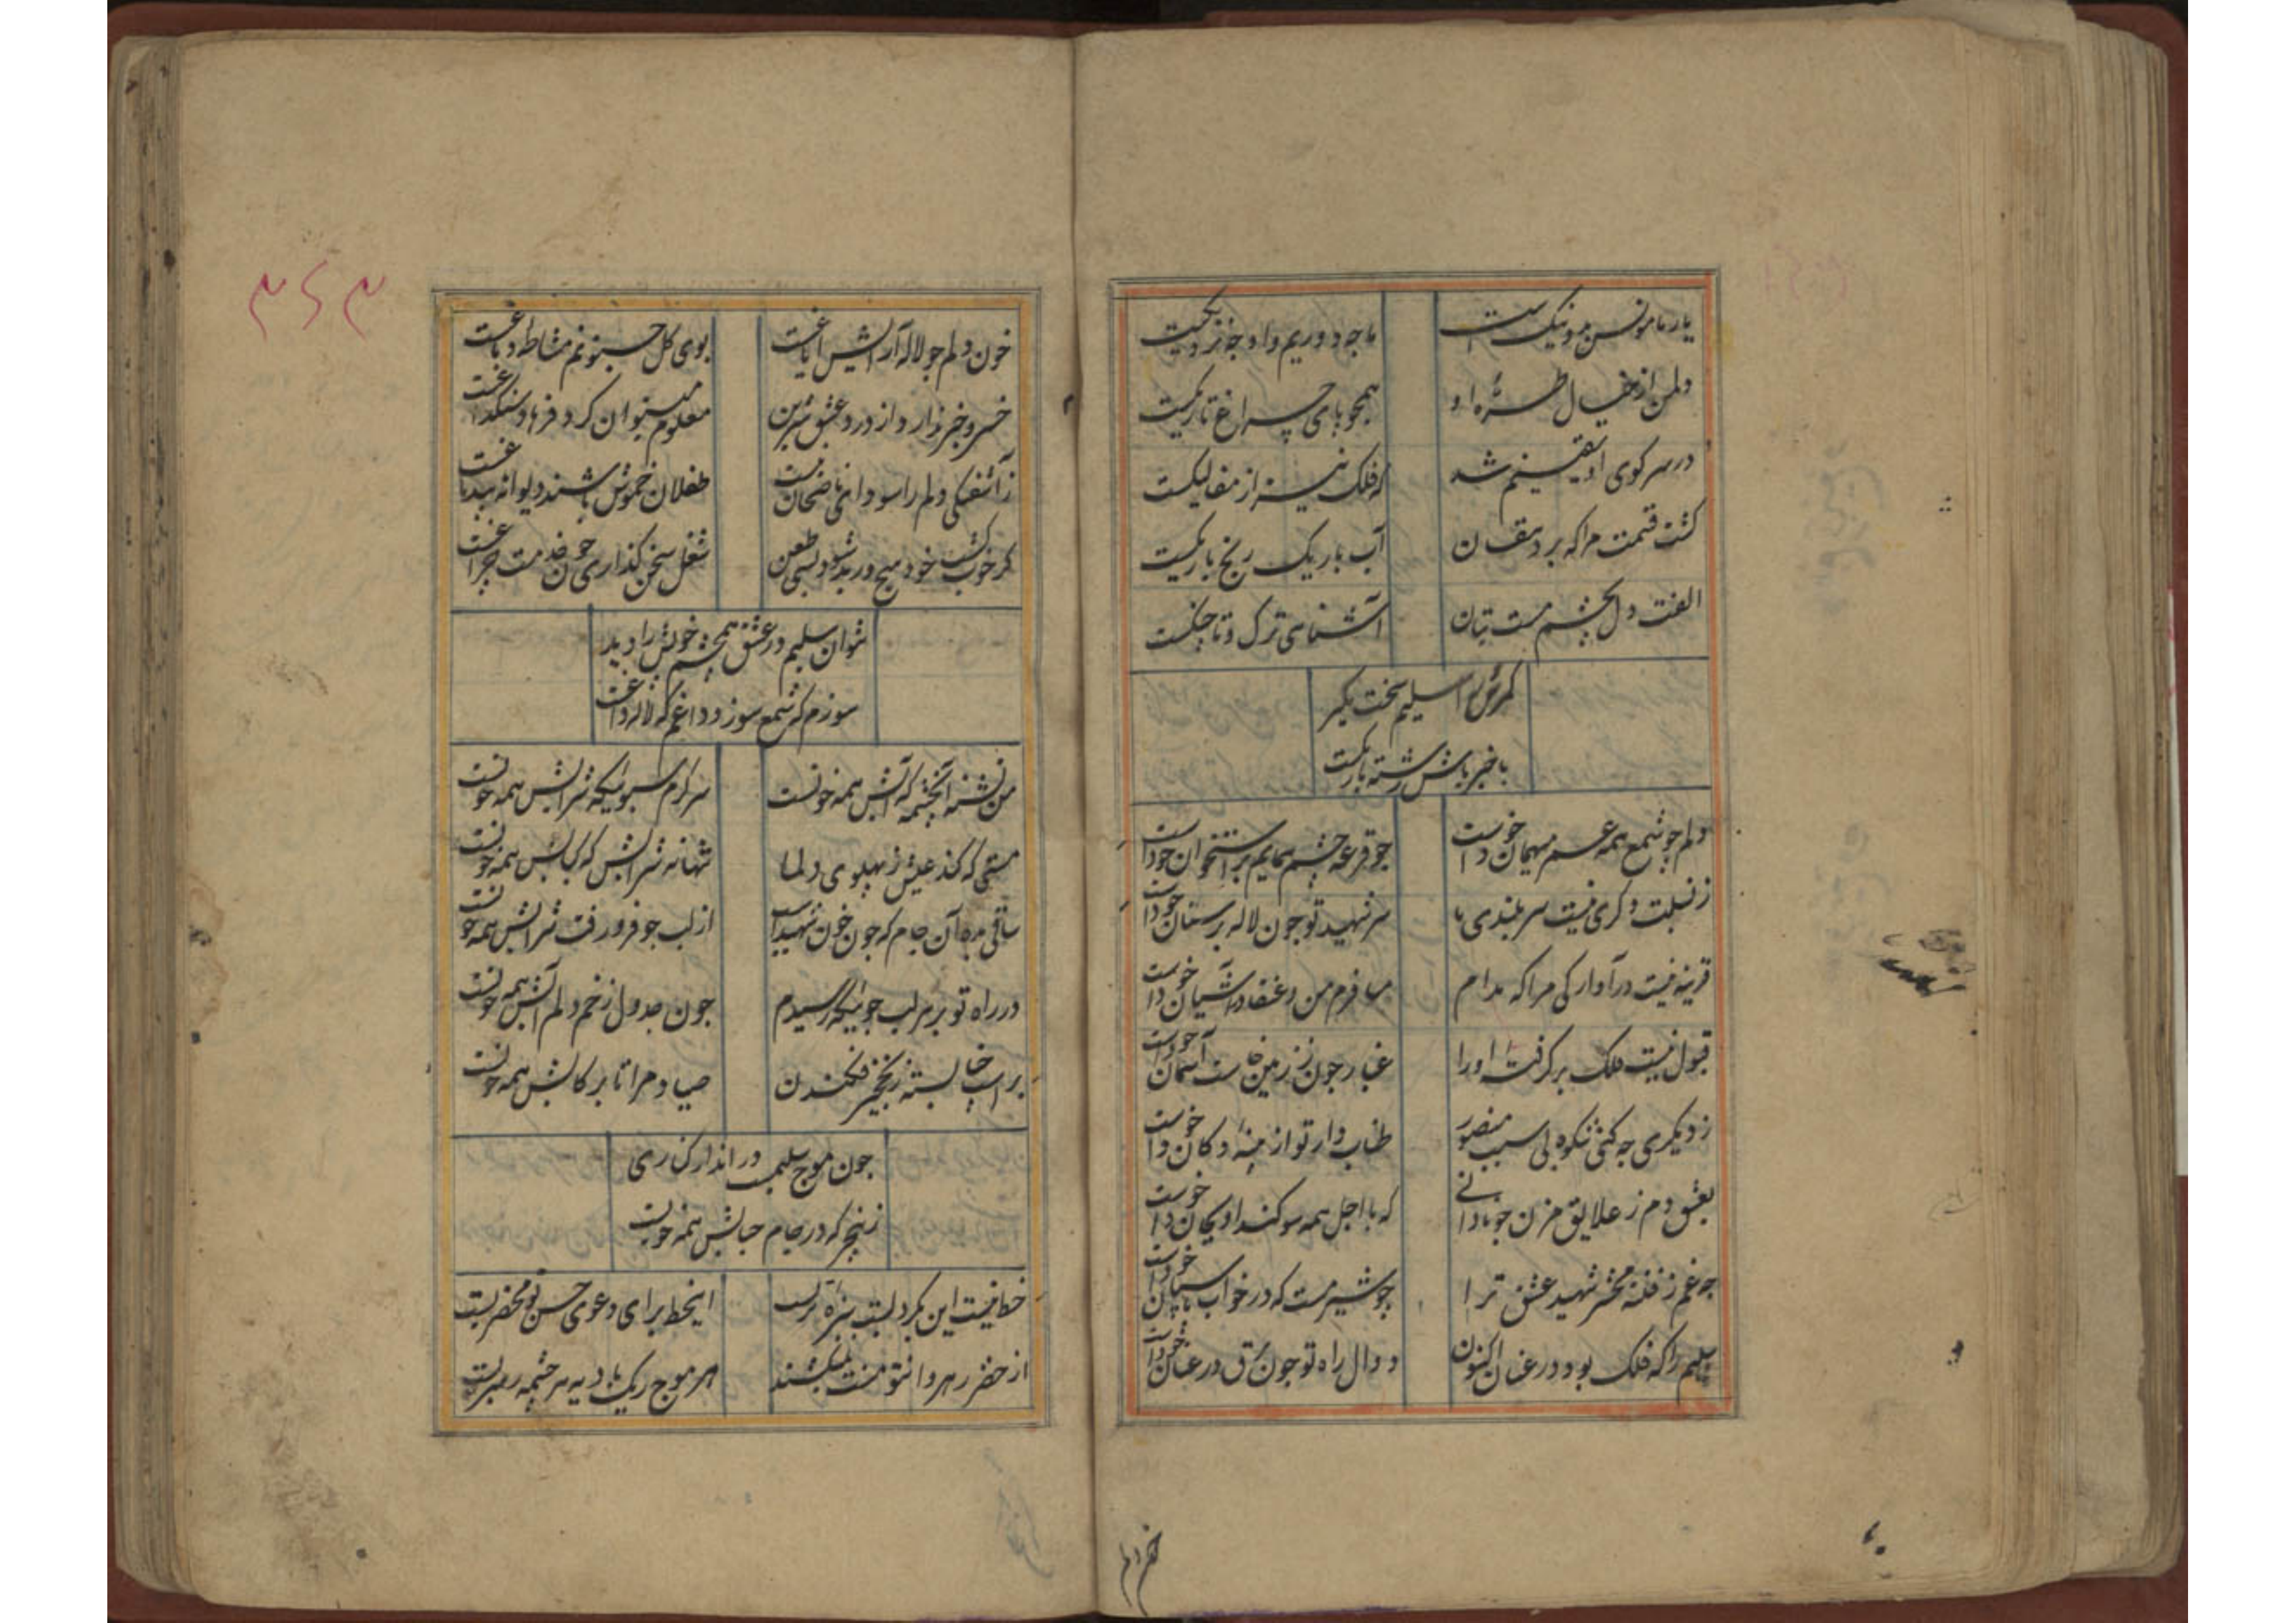 یار ما مونس من و نیک است
ما چه دوریم و او چه نزدیکست
دلمن از خیال طرّه او
همچو پای چراغ تاریکست
در سر کوی او یقینم شد
که فلک نیز از ممالیکست
کشت قسمت مرا که بر دهقان
آب باریک رنج باریکست
الفت دل بچشم مست بتان
آشنای ترک و تاجیکست
کمرش را سلیم سخت مگیر
باخبر باش رشته باریکست
دلم چو شمع همه عمر میهمان خوداست
چو قرعه چشم همایم بر استخوان خوداست
ز نسبت دگری نیست سربلندی ما
سر شهید تو چون لاله بر سنان خوداست
قرینه نیست در آوارگی مرا که مدام
مسافرم من و عنقا در آشیان خوداست
قبول نیست فلک بر گرفته او را
غبار چون ز زمین خاست آسمان خوداست
ز دیگری چه کنی شکوه بی سبب منصور
طناب دار تو از پنبه دکان خوداست
بعشق دم ز علایق مزن چو نادانی
که با اجل همه سوکند او بجان خوداست
چه غم ز فتنه محشر شهید عشق ترا
چو شیر مست که در خواب پاسبان خوداست
سلیم را که فلک بود در عنان اکنون
دوال راه تو چون برق در عنان خوداست
خون دلم
۳۶۳
خون دلم چو لاله آرایش ایاغست
بوی کل حسینم مشاطه دماغست
خسرو خبر ندارد از درد عشق شیرین
معلوم میتوان کرد فرهاد سنگداغست
ز آشفتگی دلم را سودای ناصحان نیست
طفلان خموش باشند دیوانه بیدماغست
کر خوب کشت خود هیچ ور بد شود بسی طعن
شغل سخن گذاری چون خدمت چراغست
نتوان سلیم در عشق همچشم خویش را دید
سوزم که شمع سوزد داغم که لاله داغست
من تشنه آنچشمه که آبش همه خونست
سرگرم سبوئیکه شرابش همه خونست
مستی که کند عیش ز پهلوی دلها
تنها نه شرابش که کبابش همه خونست
ساقی بده آن جام که چون خون شهیدان
از لب چو فرو رفت شرابش همه خونست
در راه تو بر هر لب جوئیکه رسیدم
چون جدول زخم دلم آبش همه خونست
بر اسب حنا بسته ز نخجیر فکندن
صیاد مرا تا برکابش همه خونست
چون موج سلیمست در انداز کناری
زین بحر که در جام حبابش همه خونست
خطا نیست این بگرد لبت سبزه ترست
اینخط برای دعوی حسن تو محضرست
از خضر رهروان تو منت نمیکشند
هر موج ریک بادیه سرچشمه رهبرست